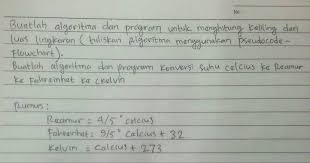 No:
Buatlah algoritma dan program untuk menghitung keliling dan
luas lingkaran (tuliskan Algoritma menggunakan pseudocode -
Flowchart).
Buatlah algoritma dan program konversi suhu celcius ke Reamur
ke Fahreinhat ke ckelvin
Rumus:
Reamur = 4/5 * celcius
Fahrenhat = 9/5 * Calcius + 32
Kelvin = Calcius + 273